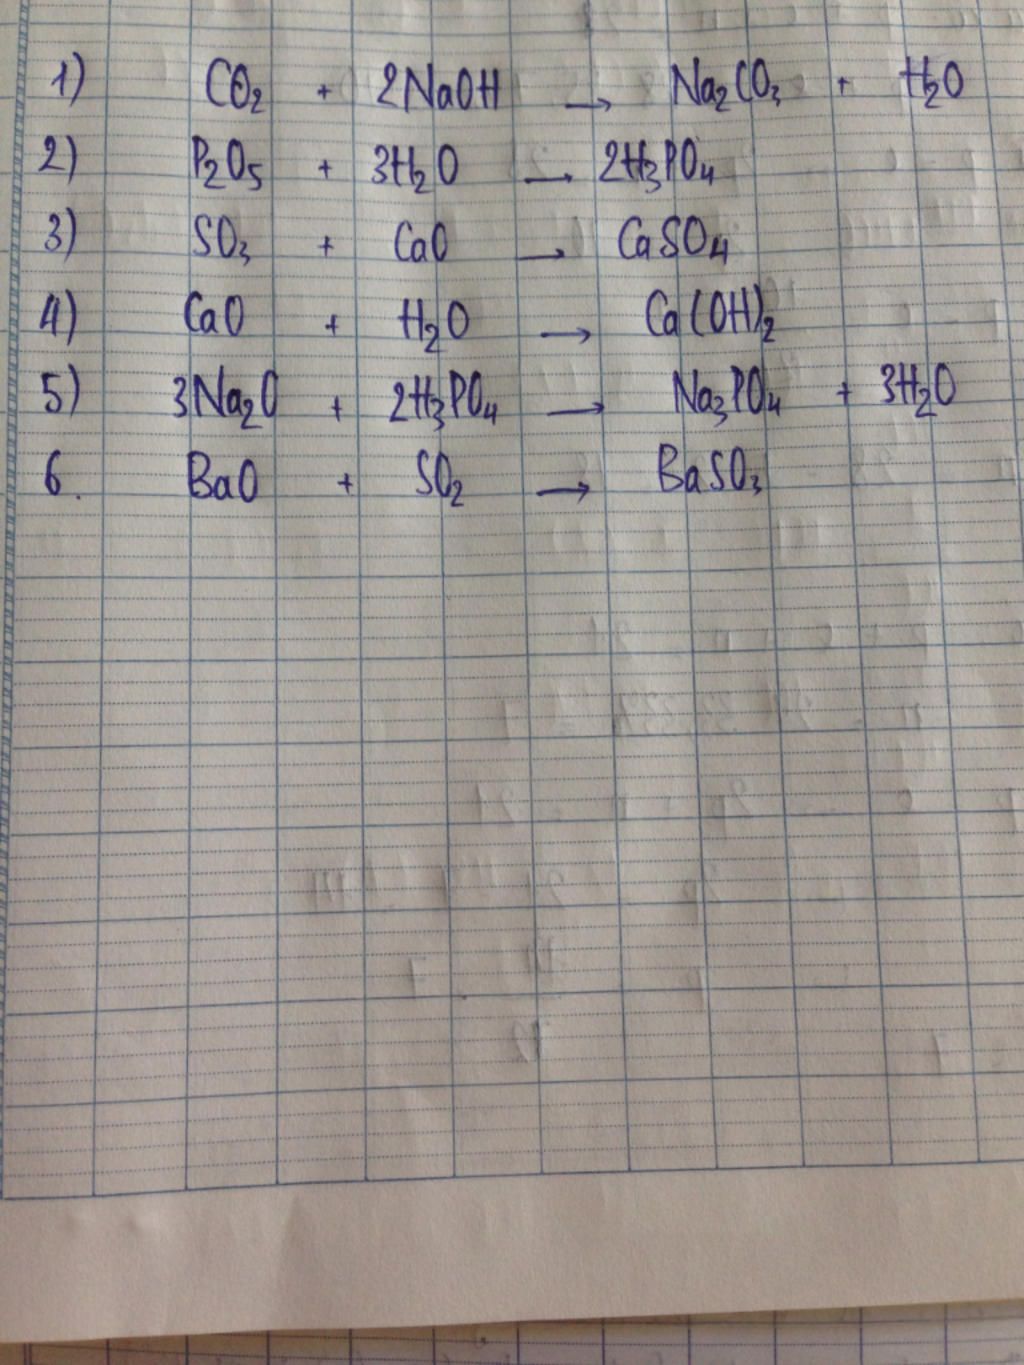 1) CO₂ + 2NaOH → Na₂CO₃ + H₂O
2) P₂O₅ + 3H₂O → 2H₃PO₄
3) SO₃ + CaO → CaSO₄
4) CaO + H₂O → Ca(OH)₂
5) 3Na₂O + 2H₃PO₄ → Na₃PO₄ + 3H₂O
6. BaO + SO₂ → BaSO₃